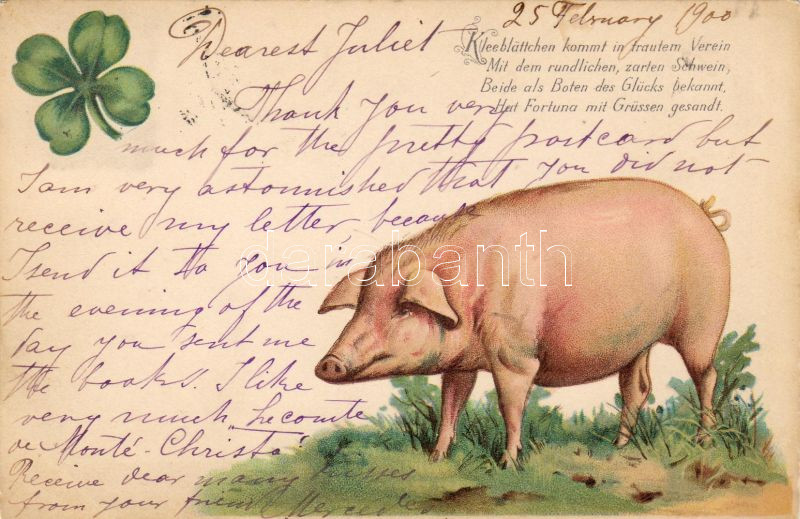 25 February 1900
Kleeblättchen kommt in trautem Verein
Mit dem rundlichen, zarten Schwein,
Beide als Boten des Glücks bekannt,
Hat Fortuna mit Grüssen gesandt.
Dearest Juliet
Thank you very
much for the pretty postcard but
I am very astonnished that you did not
receive my letter, because
I send it to you in
the evening of the
day you sent me
the books. I like
very much „Le comte
de Monté-Christo"
Receive dear many kisses
from your friend Mercedes
darabanth